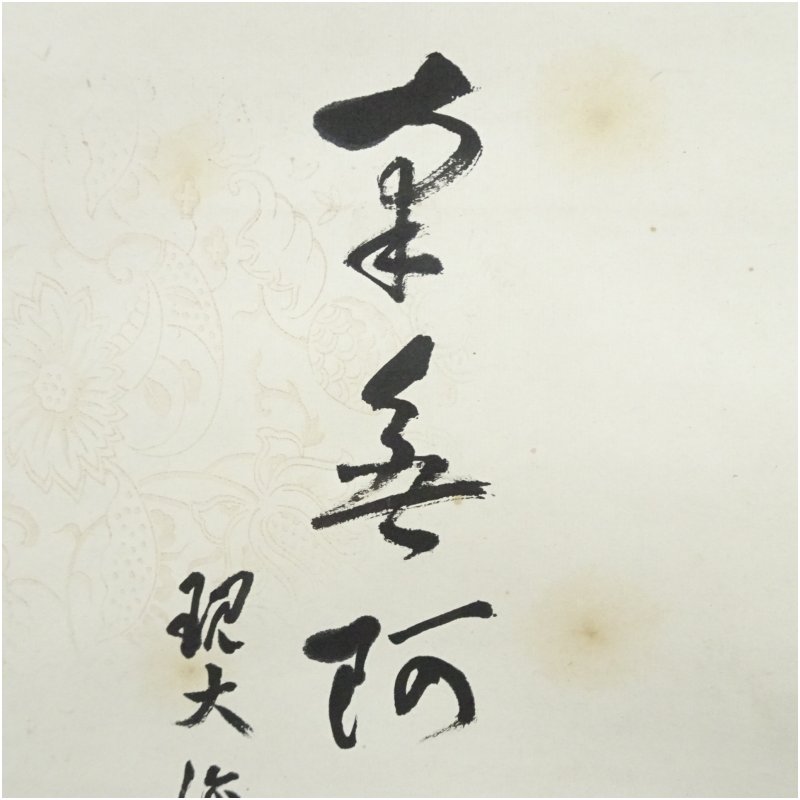 南無阿
現大